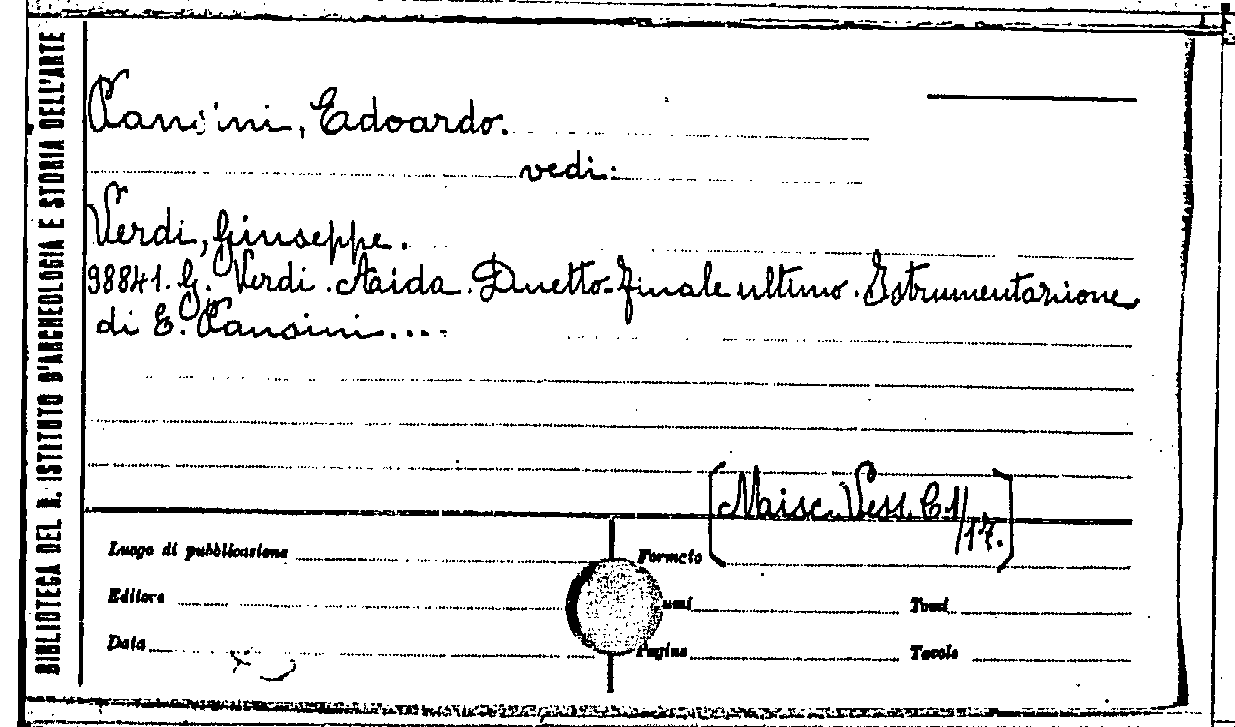 BIBLIOTECA DEL R. ISTITUTO D'ARCHEOLOGIA E STORIA DELL'ARTE
Pansini, Edoardo.
vedi:
Verdi, Giuseppe.
98841. G. Verdi. Aida. Duetto-finale ultimo. Istrumentazione
di E. Pansini....
[Misc. Vess. C.1/17.]
Luogo di pubblicazione
Formato
Editore
umi
Tomi
Data
Pagine
Tavole